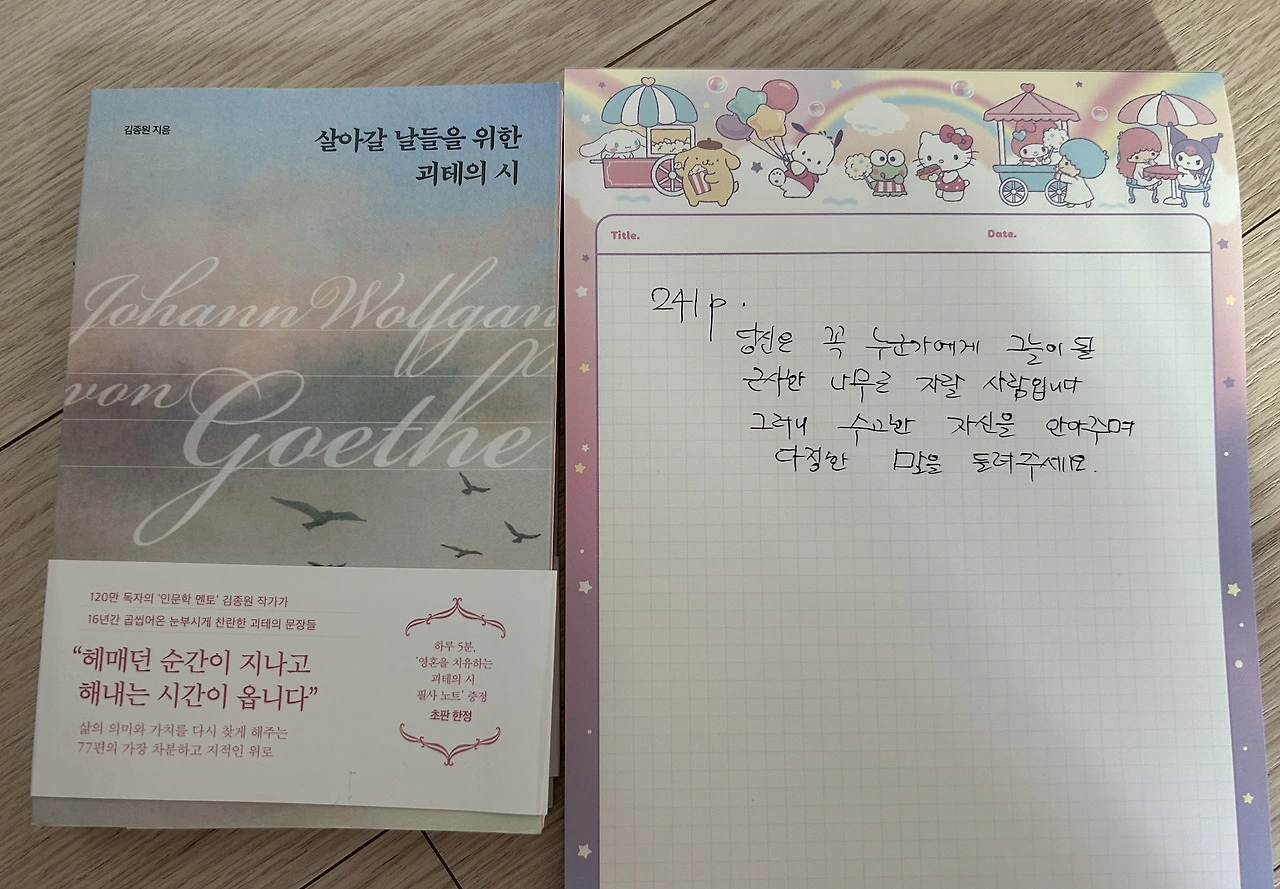 김종원 지음
살아갈 날들을 위한
괴테의 시
Johann Wolfgang
von
Goethe
120만 독자의 '인문학 멘토' 김종원 작가가
16년간 곱씹어온 눈부시게 찬란한 괴테의 문장들
“헤매던 순간이 지나고
해내는 시간이 옵니다”
삶의 의미와 가치를 다시 찾게 해주는
77편의 가장 차분하고 지적인 위로
하루 5분,
'영혼을 치유하는
괴테의 시
필사 노트' 증정
초판 한정
Title.
Date.
241p.
당신은 꼭 누군가에게 그늘이 될
근사한 나무로 자랄 사람입니다
그러니 수고한 자신을 안아주며
다정한 말을 들려주세요.